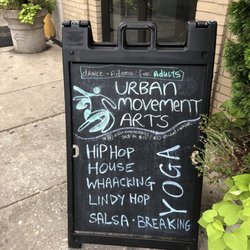 dance + fitness for ADULTS
URBAN
MOVEMENT
ARTS
HIP HOP
HOUSE
WHAACKING
LINDY HOP
SALSA • BREAKING
YOGA